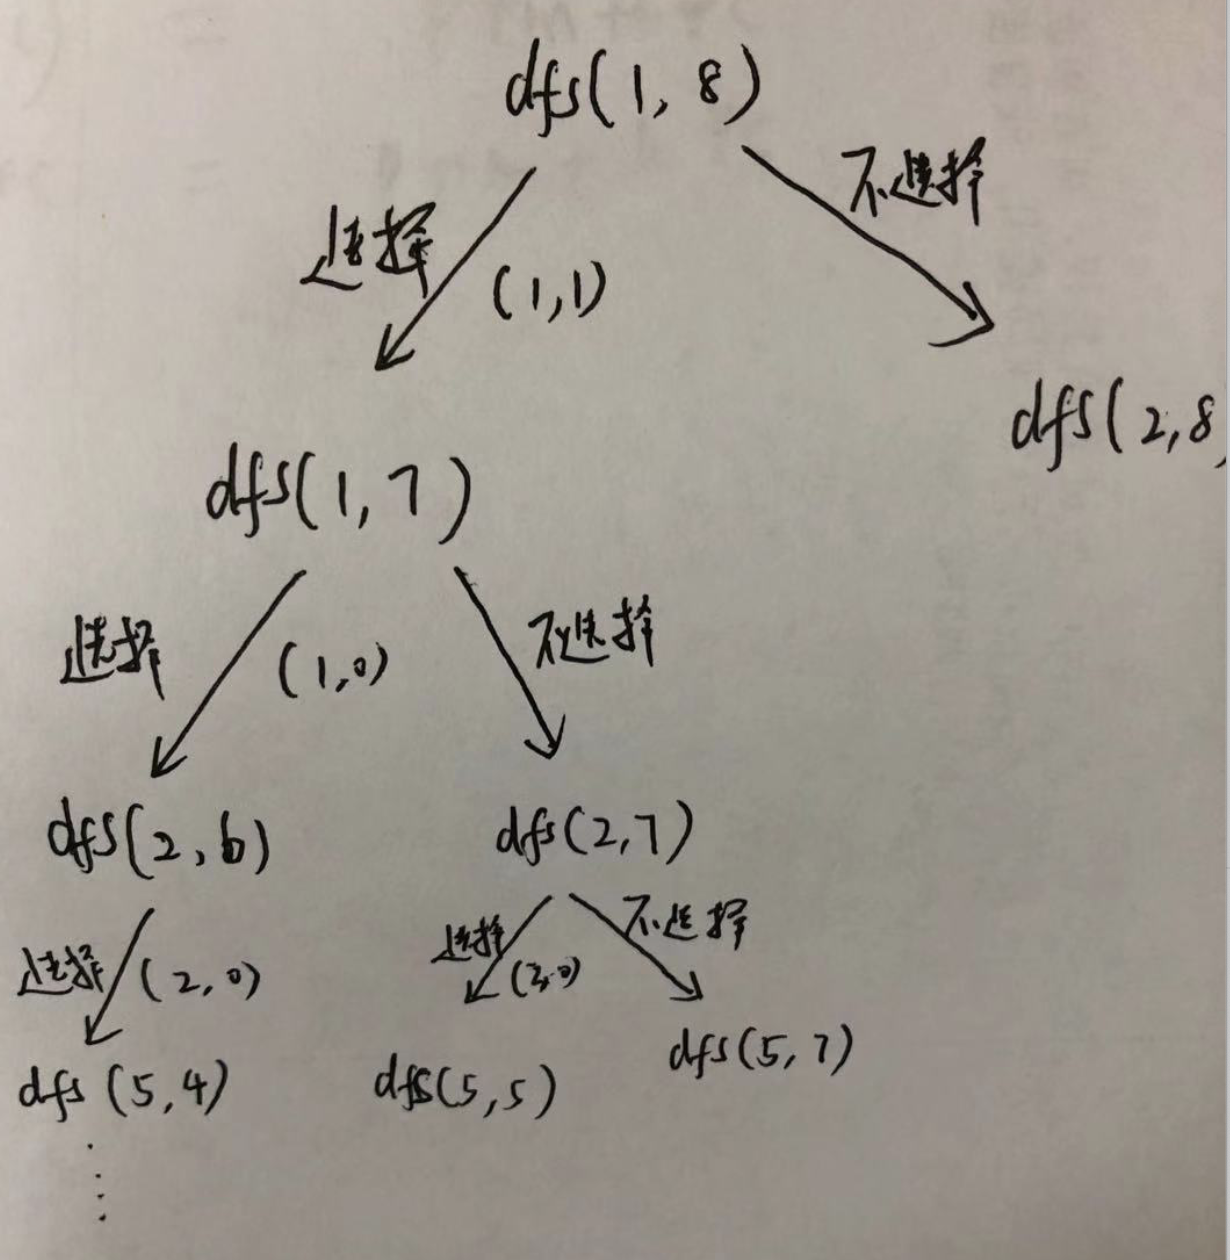 dfs(1, 8)
不选择
选择
(1,1)
dfs(2,8
dfs(1,7)
选择
(1,0)
不选择
dfs(2,6)
dfs(2,7)
选择
(2,0)
选择
(2,0)
不选择
dfs(5,4)
dfs(5,5)
dfs(5,7)